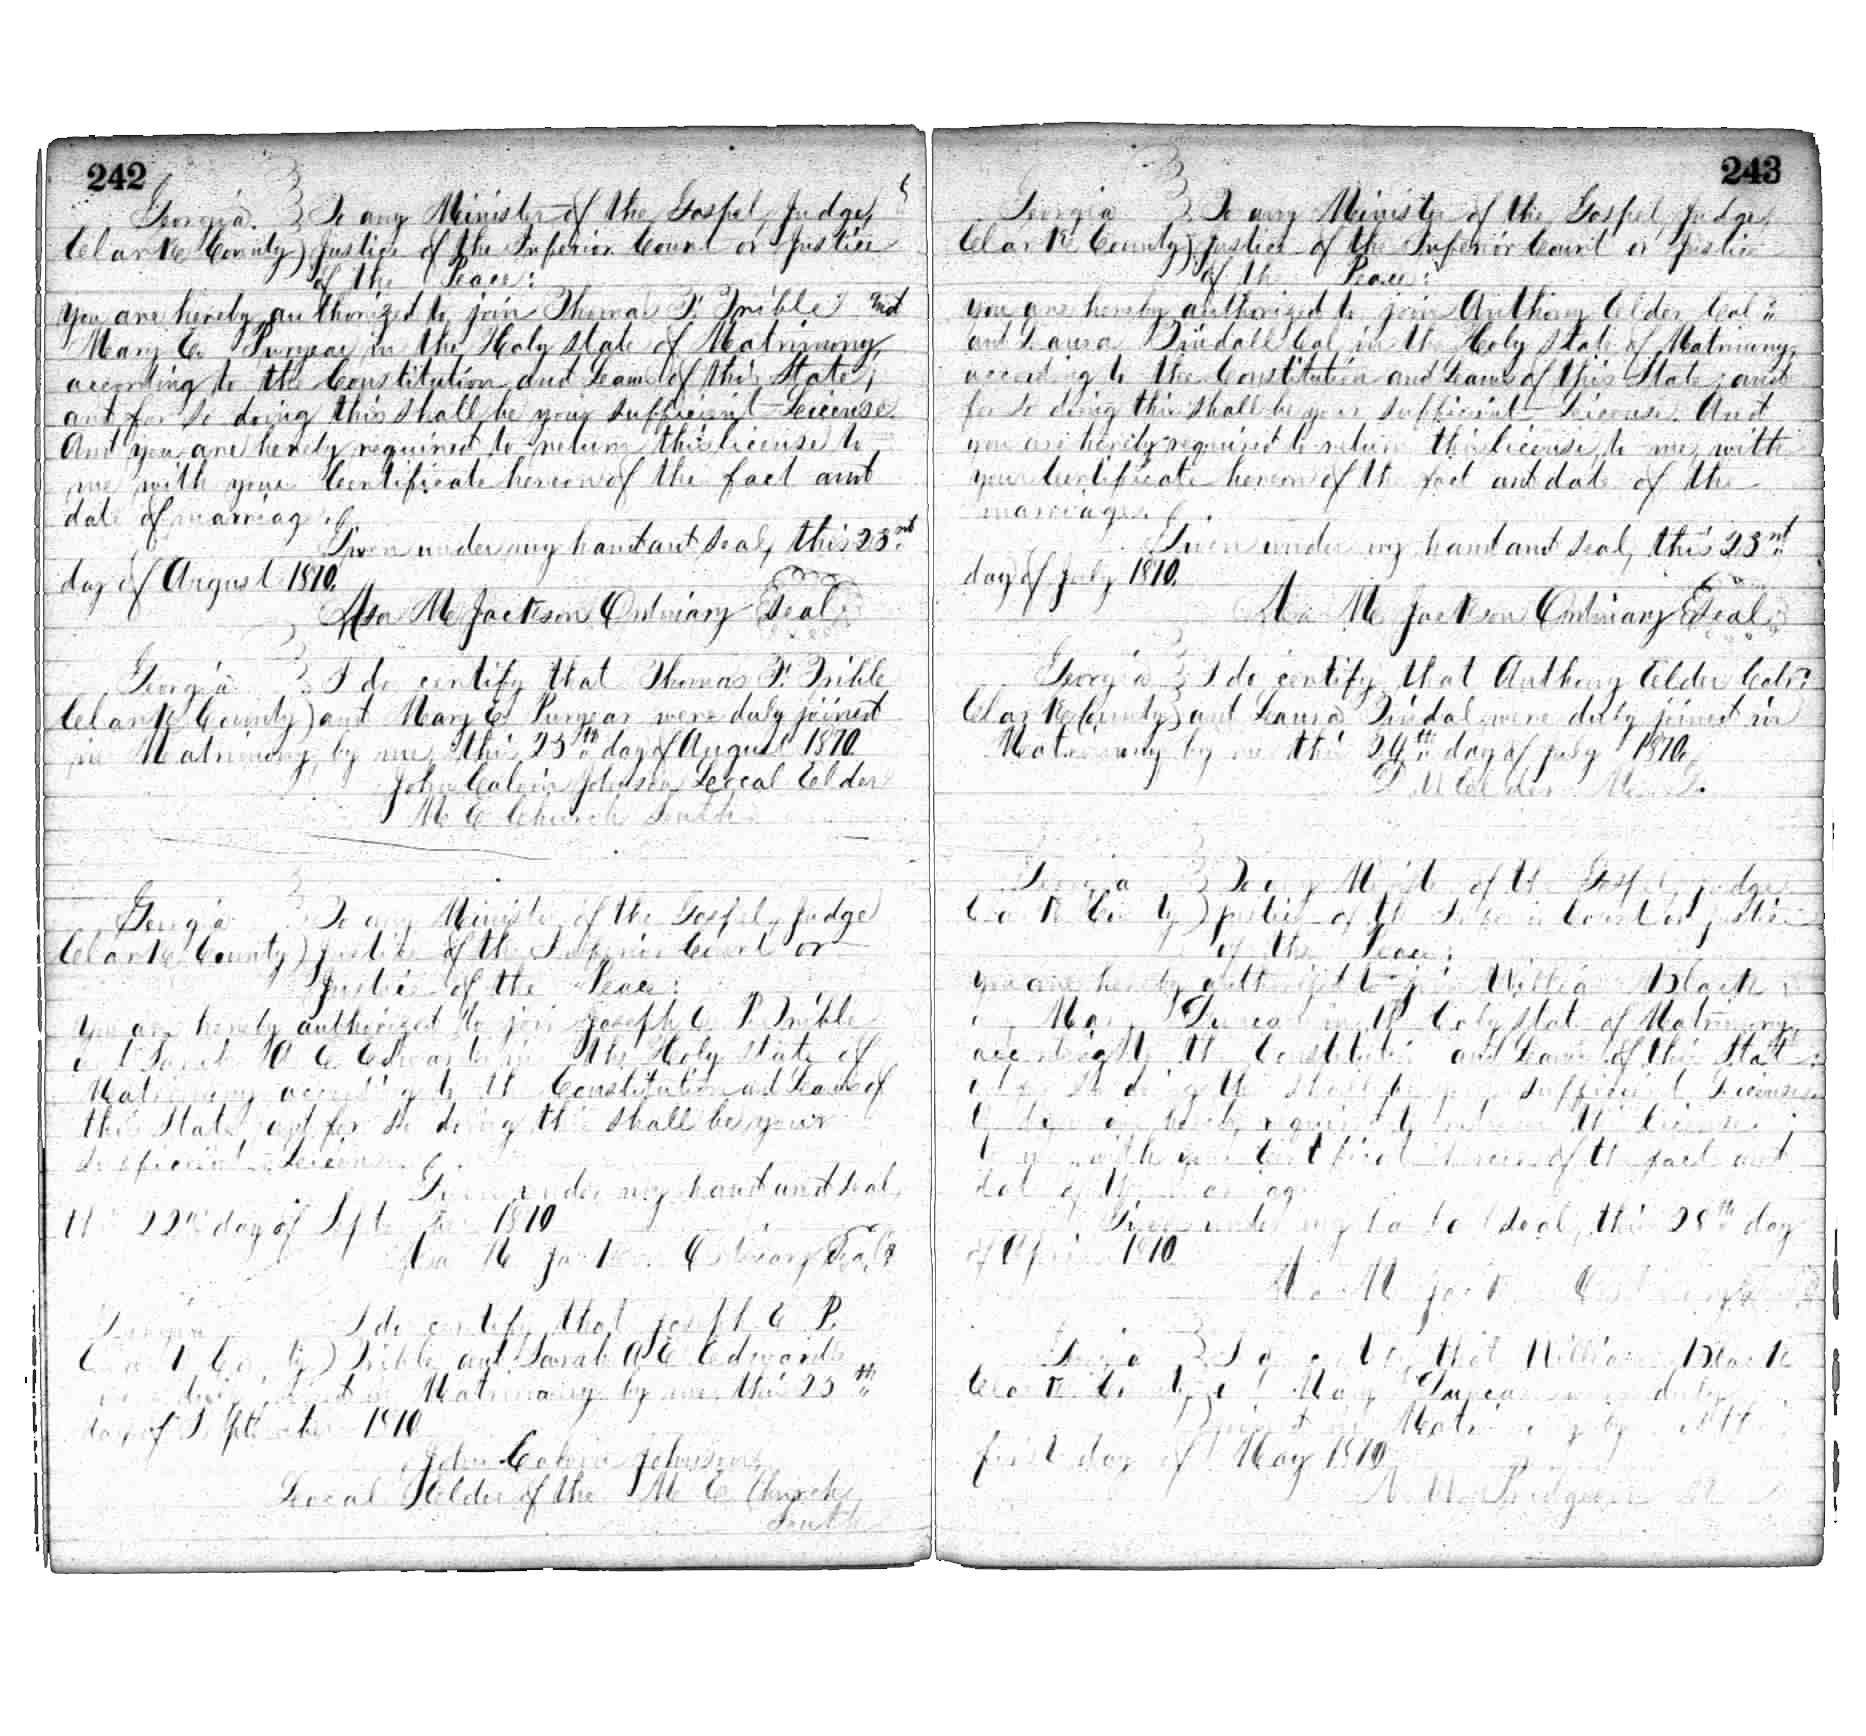 242
Georgia. To any Minister of the Gospel, Judge,
Clarke County) Justice of the Superior Court or Justice
of the Peace:
You are hereby authorized to join Thomas F. Trible and
Mary E. Puryear in the Holy state of Matrimony,
according to the Constitution and Laws of this State;
and for so doing this shall be your sufficient License
And you are hereby required to return this license to
me with your Certificate hereon of the fact and
date of marriage.
Given under my hand and seal, this 23rd
day of August 1870.
Asa M Jackson Ordinary Seal
Georgia I do certify that Thomas F. Trible
Clarke County) and Mary E. Puryear were duly joined
in Matrimony by me, this 25th day of August 1870
John Calvin Johnson Local Elder
M E Church South
Georgia To any Minister of the Gospel, Judge
Clarke County) Justice of the Superior Court or
Justice of the Peace:
You are hereby authorized to join Joseph C. P. Trible
and Sarah A E Edwards in the Holy state of
Matrimony according to the Constitution and Laws of
this State, and for so doing this shall be your
sufficient License
Given under my hand and seal,
this 22nd day of September 1870
Asa M Jackson Ordinary Seal
Georgia I do certify that Joseph C P.
Clarke County) Trible and Sarah A E Edwards
were duly joined in Matrimony by me, this 25th
day of September 1870
John Calvin Johnson
Local Elder of the M E Church
South
243
Georgia To any Minister of the Gospel, Judge,
Clarke County) Justice of the Superior Court or Justice
of the Peace:
You are hereby authorized to join Anthony Elder Cold
and Laura Tindall Col, in the Holy State of Matrimony,
according to the Constitution and Laws of this State; and
for so doing this shall be your sufficient License. And
you are hereby required to return this license, to me, with
your Certificate hereon of the fact and date of the
marriage.
Given under my hand and seal, this 23rd
day of July 1870.
Asa M Jackson Ordinary Seal
Georgia I do certify, that Anthony Elder Cold
Clarke County) and Laura Tindal were duly joined in
Matrimony by me this 24th day of July 1870.
D M Elder M. G.
Georgia To any Minister of the Gospel, Judge
Clarke County) Justice of the Superior Court or Justice
of the Peace:
You are hereby authorized to join William Black
Mary Duncan in the Holy state of Matrimony,
according to the Constitution and Laws of this State:
so doing this shall be your sufficient License
hereby required to return this license
with your Certificate hereon of the fact and
date of the marriage
Given under my hand & seal, this 28th day
of April 1870
Asa M Jackson Ordinary
Georgia I do certify, that William Black
Clarke County and Mary Duncan were duly
joined in Matrimony by
first day of May 1870